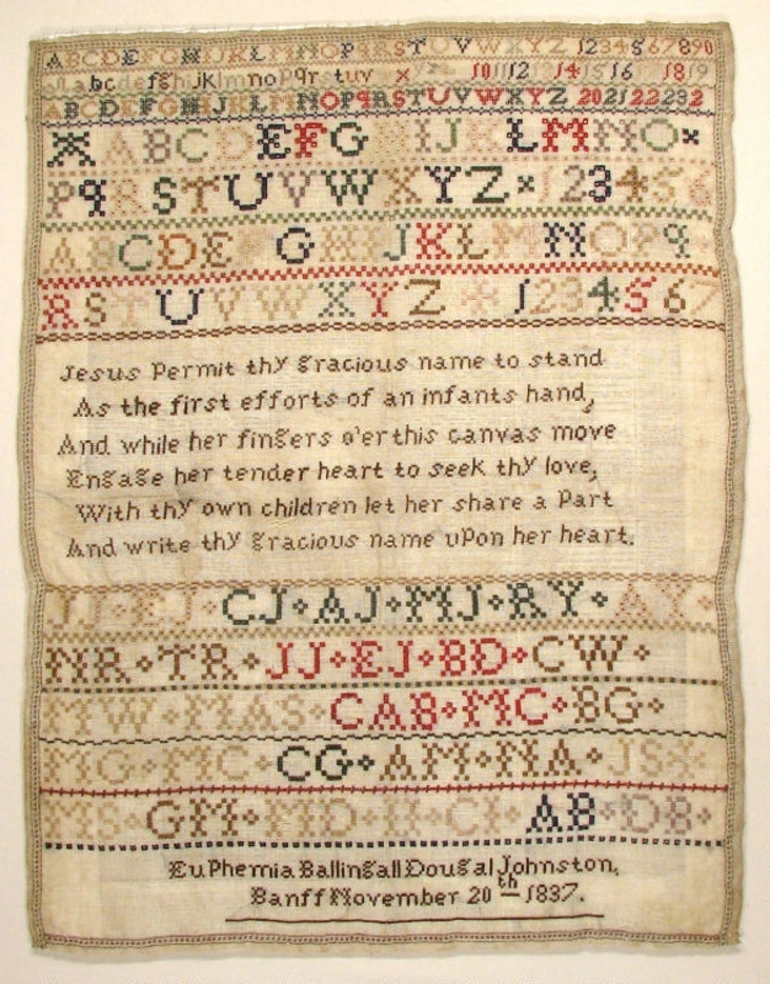 ABCDEFGHIJKLMNOPQRSTUVWXYZ 1234567890
abcdefghijklmnopqrstuv x 10 11 12 14 15 16 18 19
ABCDEFGHIJKLMNOPQRSTUVWXYZ 20 21 22 23 2
ABCDEFG IJKLMNO×
PqRSTUVWXYZ×123456
ABCDEFGHIJKLMNOPq
RSTUVWXYZ 1234567
Jesus Permit thy gracious name to stand
As the first efforts of an infants hand,
And while her fingers o'er this canvas move
Engage her tender heart to seek thy love,
With thy own children let her share a Part
And write thy gracious name upon her heart.
JJ·EJ·CJ·AJ·MJ·RY·AY·
NR·TR·JJ·EJ·BD·CW·
MW·MAS·CAB·MC·BG·
MG·MC·CG·AM·NA·JS
MS·GM·MD·H·CI·AB·DB·
Euphemia Ballingall Dougal Johnston,
Banff November 20th 1837.